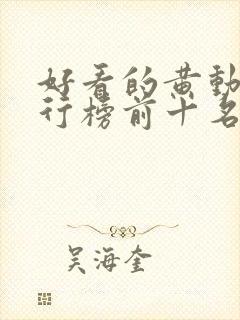 好看的黄动
行榜前十名
吴海奎